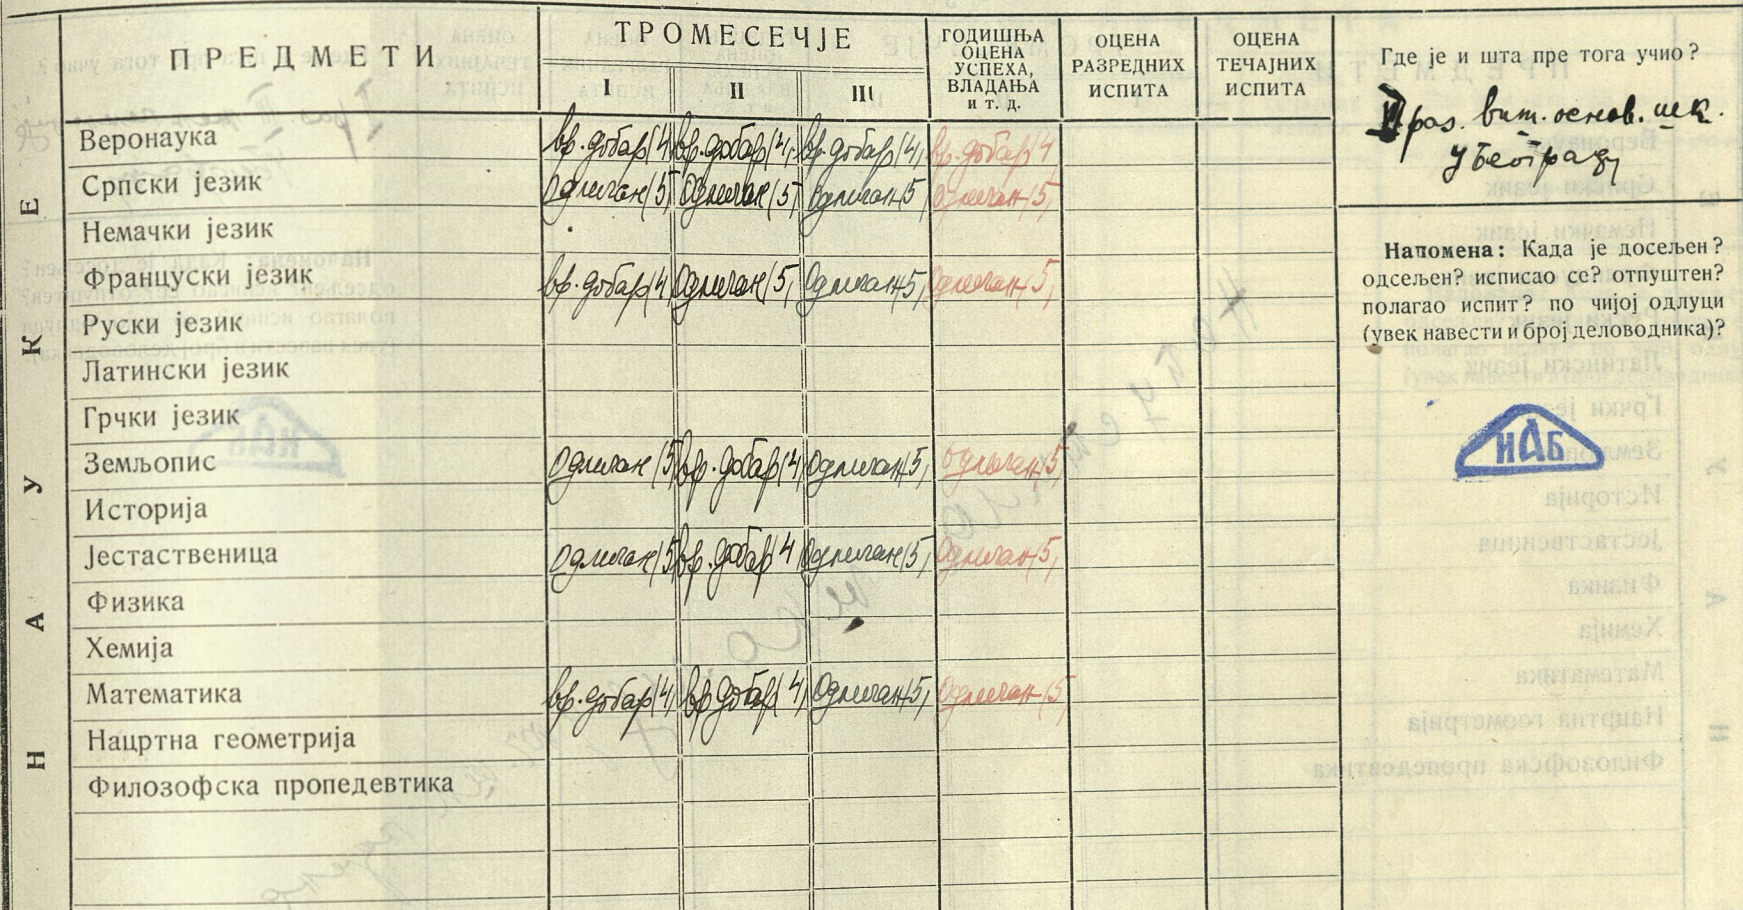 НАУКЕ
ПРЕДМЕТИ
ТРОМЕСЕЧЈЕ
I II III
ГОДИШЊА
ОЦЕНА
УСПЕХА,
ВЛАДАЊА
и т. д.
ОЦЕНА
РАЗРЕДНИХ
ИСПИТА
ОЦЕНА
ТЕЧАЈНИХ
ИСПИТА
Веронаука вр. добар (4 вр. добар (4, вр. добар (4, вр. добар 4
Српски језик Одличан (5, Одличан (5, Одличан 5, Одличан (5,
Немачки језик
Француски језик вр. добар (4 Одличан (5, Одличан 5, Одличан 5,
Руски језик
Латински језик
Грчки језик
Земљопис Одличан (5 вр. добар (4, Одличан 5, Одличан 5,
Историја
Јестаственица Одличан (5 вр. добар (4 Одличан (5, Одличан (5,
Физика
Хемија
Математика вр. добар (4, вр добар (4, Одличан 5, Одличан (5
Нацртна геометрија
Филозофска пропедевтика
Где је и шта пре тога учио?
раз. основ. шк.
у Београду
Напомена: Када је досељен?
одсељен? исписао се? отпуштен?
полагао испит? по чијој одлуци
(увек навести и број деловодника)?
ИАБ